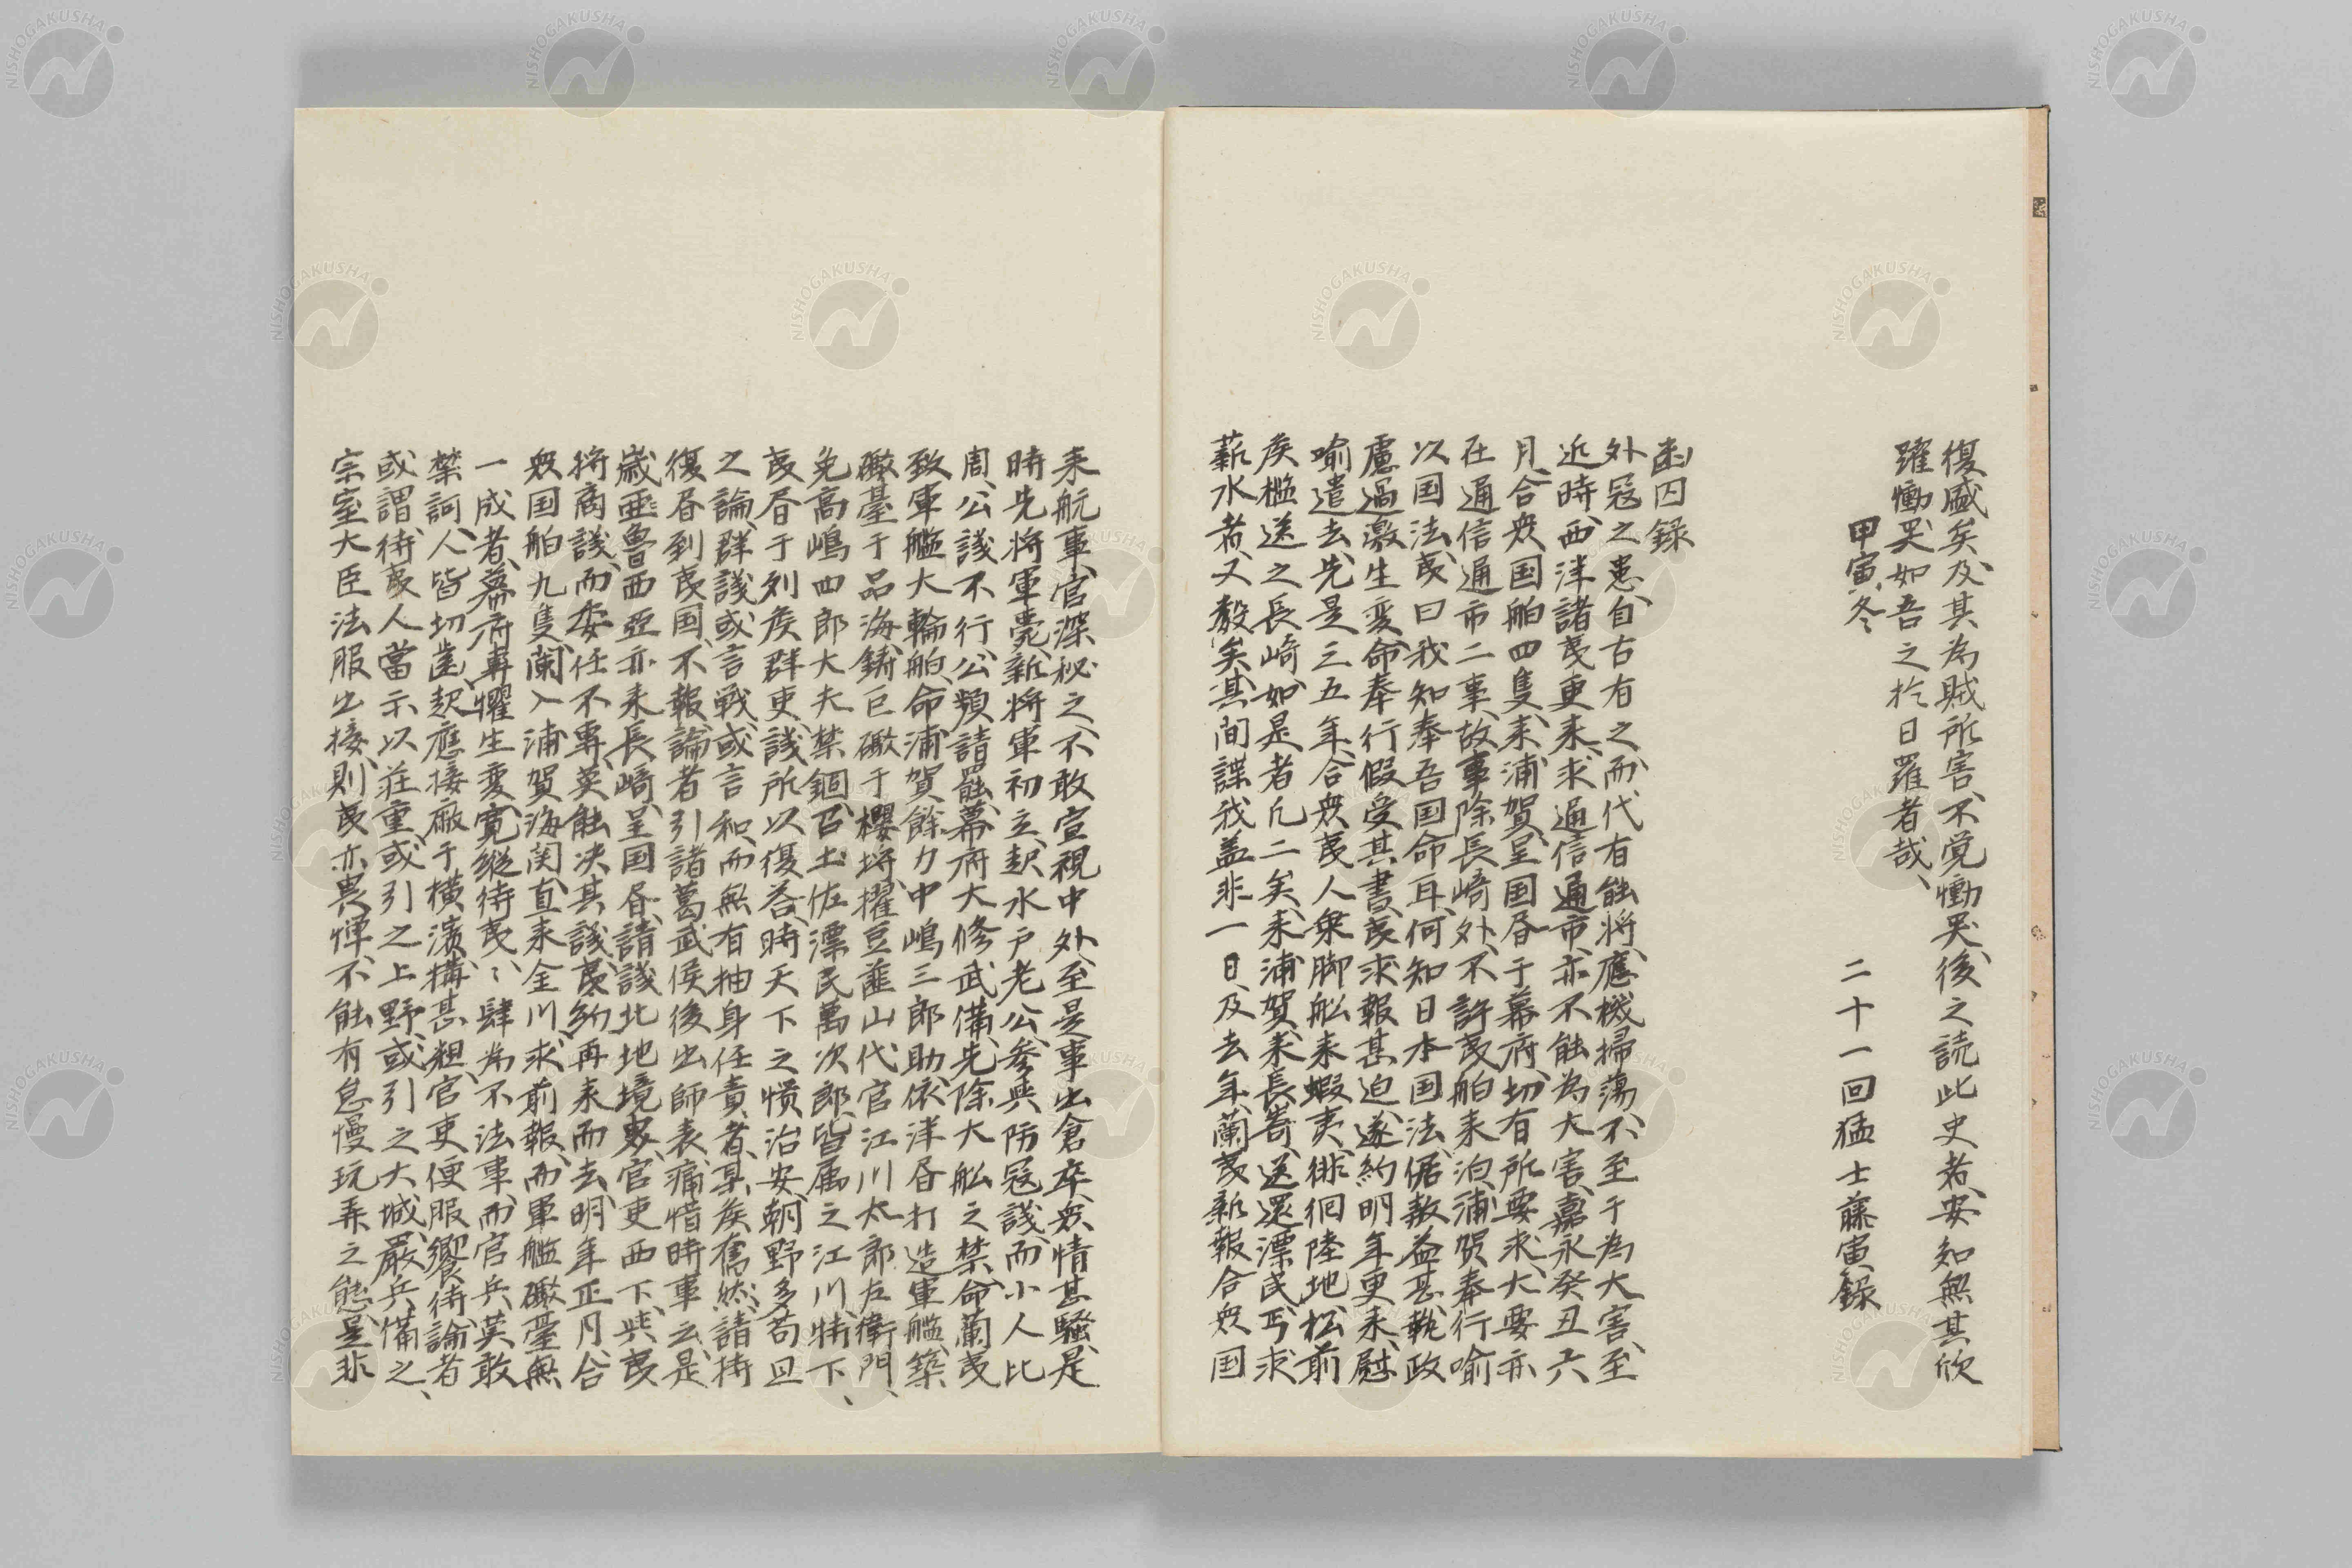 復盛矣、及其為賊所害、不覚慟哭、後之読此史者、安知無其欣
躍慟哭如吾之於日羅者哉、
甲寅冬 二十一回猛士藤寅録
幽囚録
外冦之患、自古有之、而代有能将、應機掃蕩、不至于為大害、至
近時、西洋諸夷更来、求通信通市、亦不能為大害、嘉永癸丑六
月、合衆国舶四隻、来浦賀、呈国書于幕府、切有所要求、大要亦
在通信通市二事、故事除長崎外、不許夷舶来泊、浦賀奉行喻
以国法、夷曰我知奉吾国命耳、何知日本国法、倨敖益甚、執政
慮過激生変、命奉行假受其書、夷求報甚迫、遂約明年更来、慰
喻遣去、先是三五年、合衆夷人乗脚船来蝦夷、徘徊陸地、松前
矦檻送之長崎、如是者凡二矣、来浦賀、来長﨑、送還漂民、丐求
薪水者、又数矣、其間諜我、盖非一日、及去年、蘭夷新報合衆国
来航事、官深秘之、不敢宣視中外、至是事出倉卒、衆情甚騒、是
時先将軍薨、新将軍初立、起水戸老公、参与防冦議、而小人比
周、公議不行、公頻請罷、幕府大修武備、先除大船之禁、命蘭夷
致軍艦大輪舶、命浦賀餘力中嶋三郎助、依洋書打造軍艦、築
礮臺于品海、鋳巨礮于櫻埓、擢豆韮山代官江川太郎左衛門、
免高嶋四郎大夫禁錮、召土佐漂民萬次郎、皆属之江川、特下、
夷書于列矦群吏、議所以復答、時天下之憤治安、朝野多苟且
之論、群議或言戦或言和、而無有抽身任責者、某矦奮然、請持
復書到夷国、不報、論者引諸葛武侯後出師表、痛惜時事云、是
歳亜魯西亜亦来長崎、呈国書、請議北地境界、官吏西下、与夷
将商議、而委任不専、莫能決其議、夷約再来而去、明年正月、合
衆国舶九隻、闌入浦賀海関、直来金川、求前報、而軍艦礮臺無
一成者、幕府専懼生変、寛縦待夷、夷肆為不法事、而官兵莫敢
禁訶、人皆切歯、起應接厰于横濱、搆甚粗、官吏便服饗待、論者
或謂、待夷人當示以荘重、或引之上野、或引之大城、厳兵備之、
宗室大臣法服出接、則夷亦畏憚、不能有怠慢玩弄之態、是非